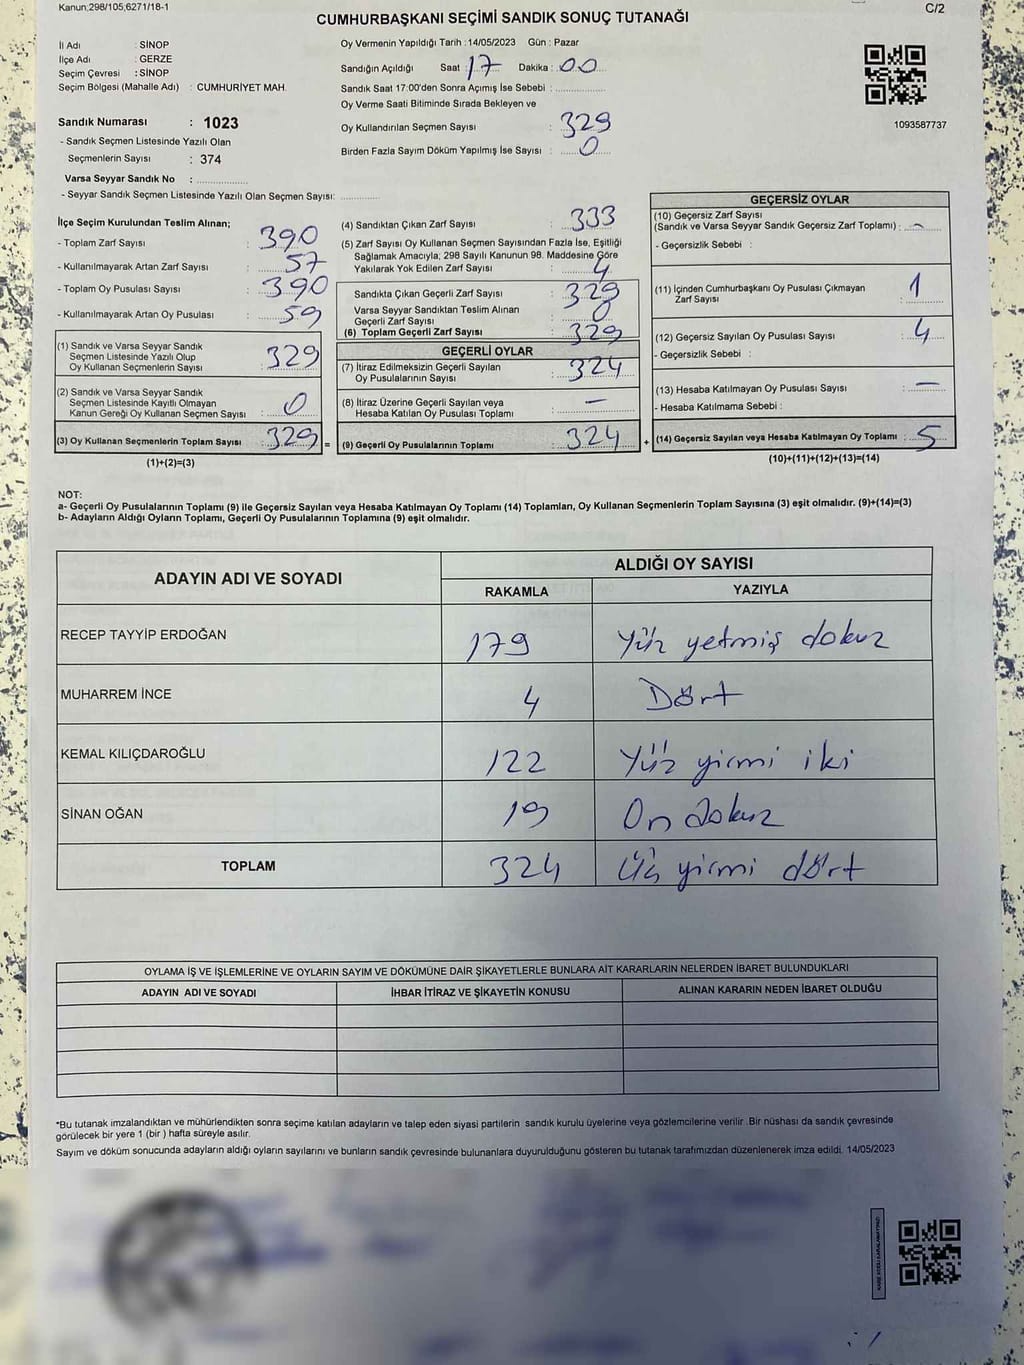 Kanun;298/105,6271/18-1
C/2
CUMHURBAŞKANI SEÇİMİ SANDIK SONUÇ TUTANAĞI
İl Adı : SİNOP
İlçe Adı : GERZE
Seçim Çevresi : SİNOP
Seçim Bölgesi (Mahalle Adı) : CUMHURİYET MAH.
Sandık Numarası : 1023
- Sandık Seçmen Listesinde Yazılı Olan
Seçmenlerin Sayısı : 374
Varsa Seyyar Sandık No :
- Seyyar Sandık Seçmen Listesinde Yazılı Olan Seçmen Sayısı:
Oy Vermenin Yapıldığı Tarih :14/05/2023 Gün : Pazar
Sandığın Açıldığı Saat : 17 Dakika : 00
Sandık Saat 17:00'den Sonra Açımış İse Sebebi :
Oy Verme Saati Bitiminde Sırada Bekleyen ve
Oy Kullandırılan Seçmen Sayısı : 329
Birden Fazla Sayım Döküm Yapılmış İse Sayısı : 0
1093587737
İlçe Seçim Kurulundan Teslim Alınan;
- Toplam Zarf Sayısı : 390
- Kullanılmayarak Artan Zarf Sayısı : 57
- Toplam Oy Pusulası Sayısı : 390
- Kullanılmayarak Artan Oy Pusulası : 59
(1) Sandık ve Varsa Seyyar Sandık
Seçmen Listesinde Yazılı Olup
Oy Kullanan Seçmenlerin Sayısı : 329
(2) Sandık ve Varsa Seyyar Sandık
Seçmen Listesinde Kayıtlı Olmayan
Kanun Gereği Oy Kullanan Seçmen Sayısı : 0
(3) Oy Kullanan Seçmenlerin Toplam Sayısı : 329 =
(1)+(2)=(3)
(4) Sandıktan Çıkan Zarf Sayısı : 333
(5) Zarf Sayısı Oy Kullanan Seçmen Sayısından Fazla İse, Eşitliği
Sağlamak Amacıyla; 298 Sayılı Kanunun 98. Maddesine Göre
Yakılarak Yok Edilen Zarf Sayısı : 4
Sandıkta Çıkan Geçerli Zarf Sayısı : 329
Varsa Seyyar Sandıktan Teslim Alınan
Geçerli Zarf Sayısı : 0
(6) Toplam Geçerli Zarf Sayısı : 329
GEÇERLİ OYLAR
(7) İtiraz Edilmeksizin Geçerli Sayılan
Oy Pusulalarının Sayısı : 324
(8) İtiraz Üzerine Geçerli Sayılan veya
Hesaba Katılan Oy Pusulası Toplamı : —
(9) Geçerli Oy Pusulalarının Toplamı : 324 +
GEÇERSİZ OYLAR
(10) Geçersiz Zarf Sayısı
(Sandık ve Varsa Seyyar Sandık Geçersiz Zarf Toplamı) : —
- Geçersizlik Sebebi :
(11) İçinden Cumhurbaşkanı Oy Pusulası Çıkmayan
Zarf Sayısı : 1
(12) Geçersiz Sayılan Oy Pusulası Sayısı : 4
- Geçersizlik Sebebi :
(13) Hesaba Katılmayan Oy Pusulası Sayısı : —
- Hesaba Katılmama Sebebi :
(14) Geçersiz Sayılan veya Hesaba Katılmayan Oy Toplamı : 5
(10)+(11)+(12)+(13)=(14)
NOT:
a- Geçerli Oy Pusulalarının Toplamı (9) ile Geçersiz Sayılan veya Hesaba Katılmayan Oy Toplamı (14) Toplamları, Oy Kullanan Seçmenlerin Toplam Sayısına (3) eşit olmalıdır. (9)+(14)=(3)
b- Adayların Aldığı Oyların Toplamı, Geçerli Oy Pusulalarının Toplamına (9) eşit olmalıdır.
ADAYIN ADI VE SOYADI ALDIĞI OY SAYISI
RAKAMLA YAZIYLA
RECEP TAYYİP ERDOĞAN 179 Yüz yetmiş dokuz
MUHARREM İNCE 4 Dört
KEMAL KILIÇDAROĞLU 122 Yüz yirmi iki
SİNAN OĞAN 19 On dokuz
TOPLAM 324 yirmi dört
OYLAMA İŞ VE İŞLEMLERİNE VE OYLARIN SAYIM VE DÖKÜMÜNE DAİR ŞİKAYETLERLE BUNLARA AİT KARARLARIN NELERDEN İBARET BULUNDUKLARI
ADAYIN ADI VE SOYADI İHBAR İTİRAZ VE ŞİKAYETİN KONUSU ALINAN KARARIN NEDEN İBARET OLDUĞU
*Bu tutanak imzalandıktan ve mühürlendikten sonra seçime katılan adayların ve talep eden siyasi partilerin sandık kurulu üyelerine veya gözlemcilerine verilir .Bir nüshası da sandık çevresinde
görülecek bir yere 1 (bir ) hafta süreyle asılır.
Sayım ve döküm sonucunda adayların aldığı oyların sayılarını ve bunların sandık çevresinde bulunanlara duyurulduğunu gösteren bu tutanak tarafımızdan düzenlenerek imza edildi. 14/05/2023